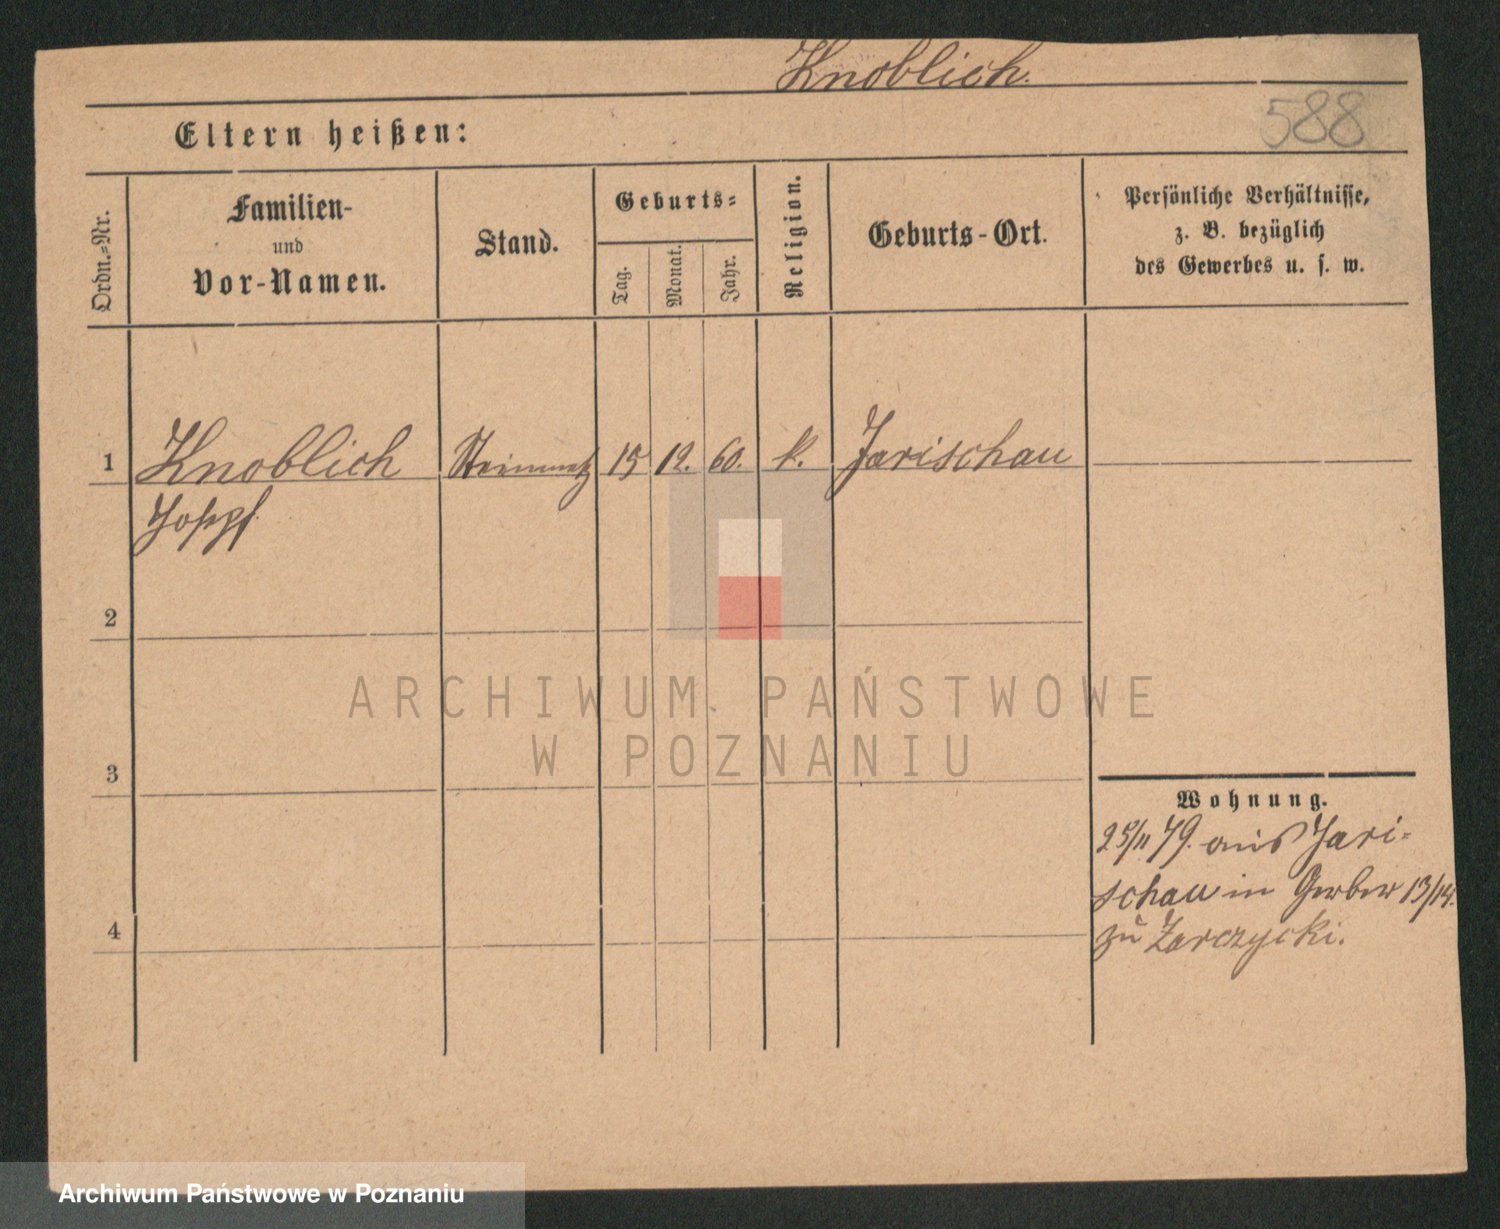 Knoblich.
588
Eltern heißen:
Ordn.-Nr.
Familien-
und
Vor-Namen.
Stand.
Geburts-
Tag.
Monat.
Jahr.
Religion.
Geburts-Ort.
Persönliche Verhältnisse,
z. B. bezüglich
des Gewerbes u. s. w.
1 Knoblich Steinmetz 15 12. 60. k. Jarischau
Joseph
2
3
4
Wohnung.
25/11 79. aus Jari-
schau in Gerber 13/14.
zu Zarczycki.
ARCHIWUM PAŃSTWOWE
W POZNANIU
Archiwum Państwowe w Poznaniu